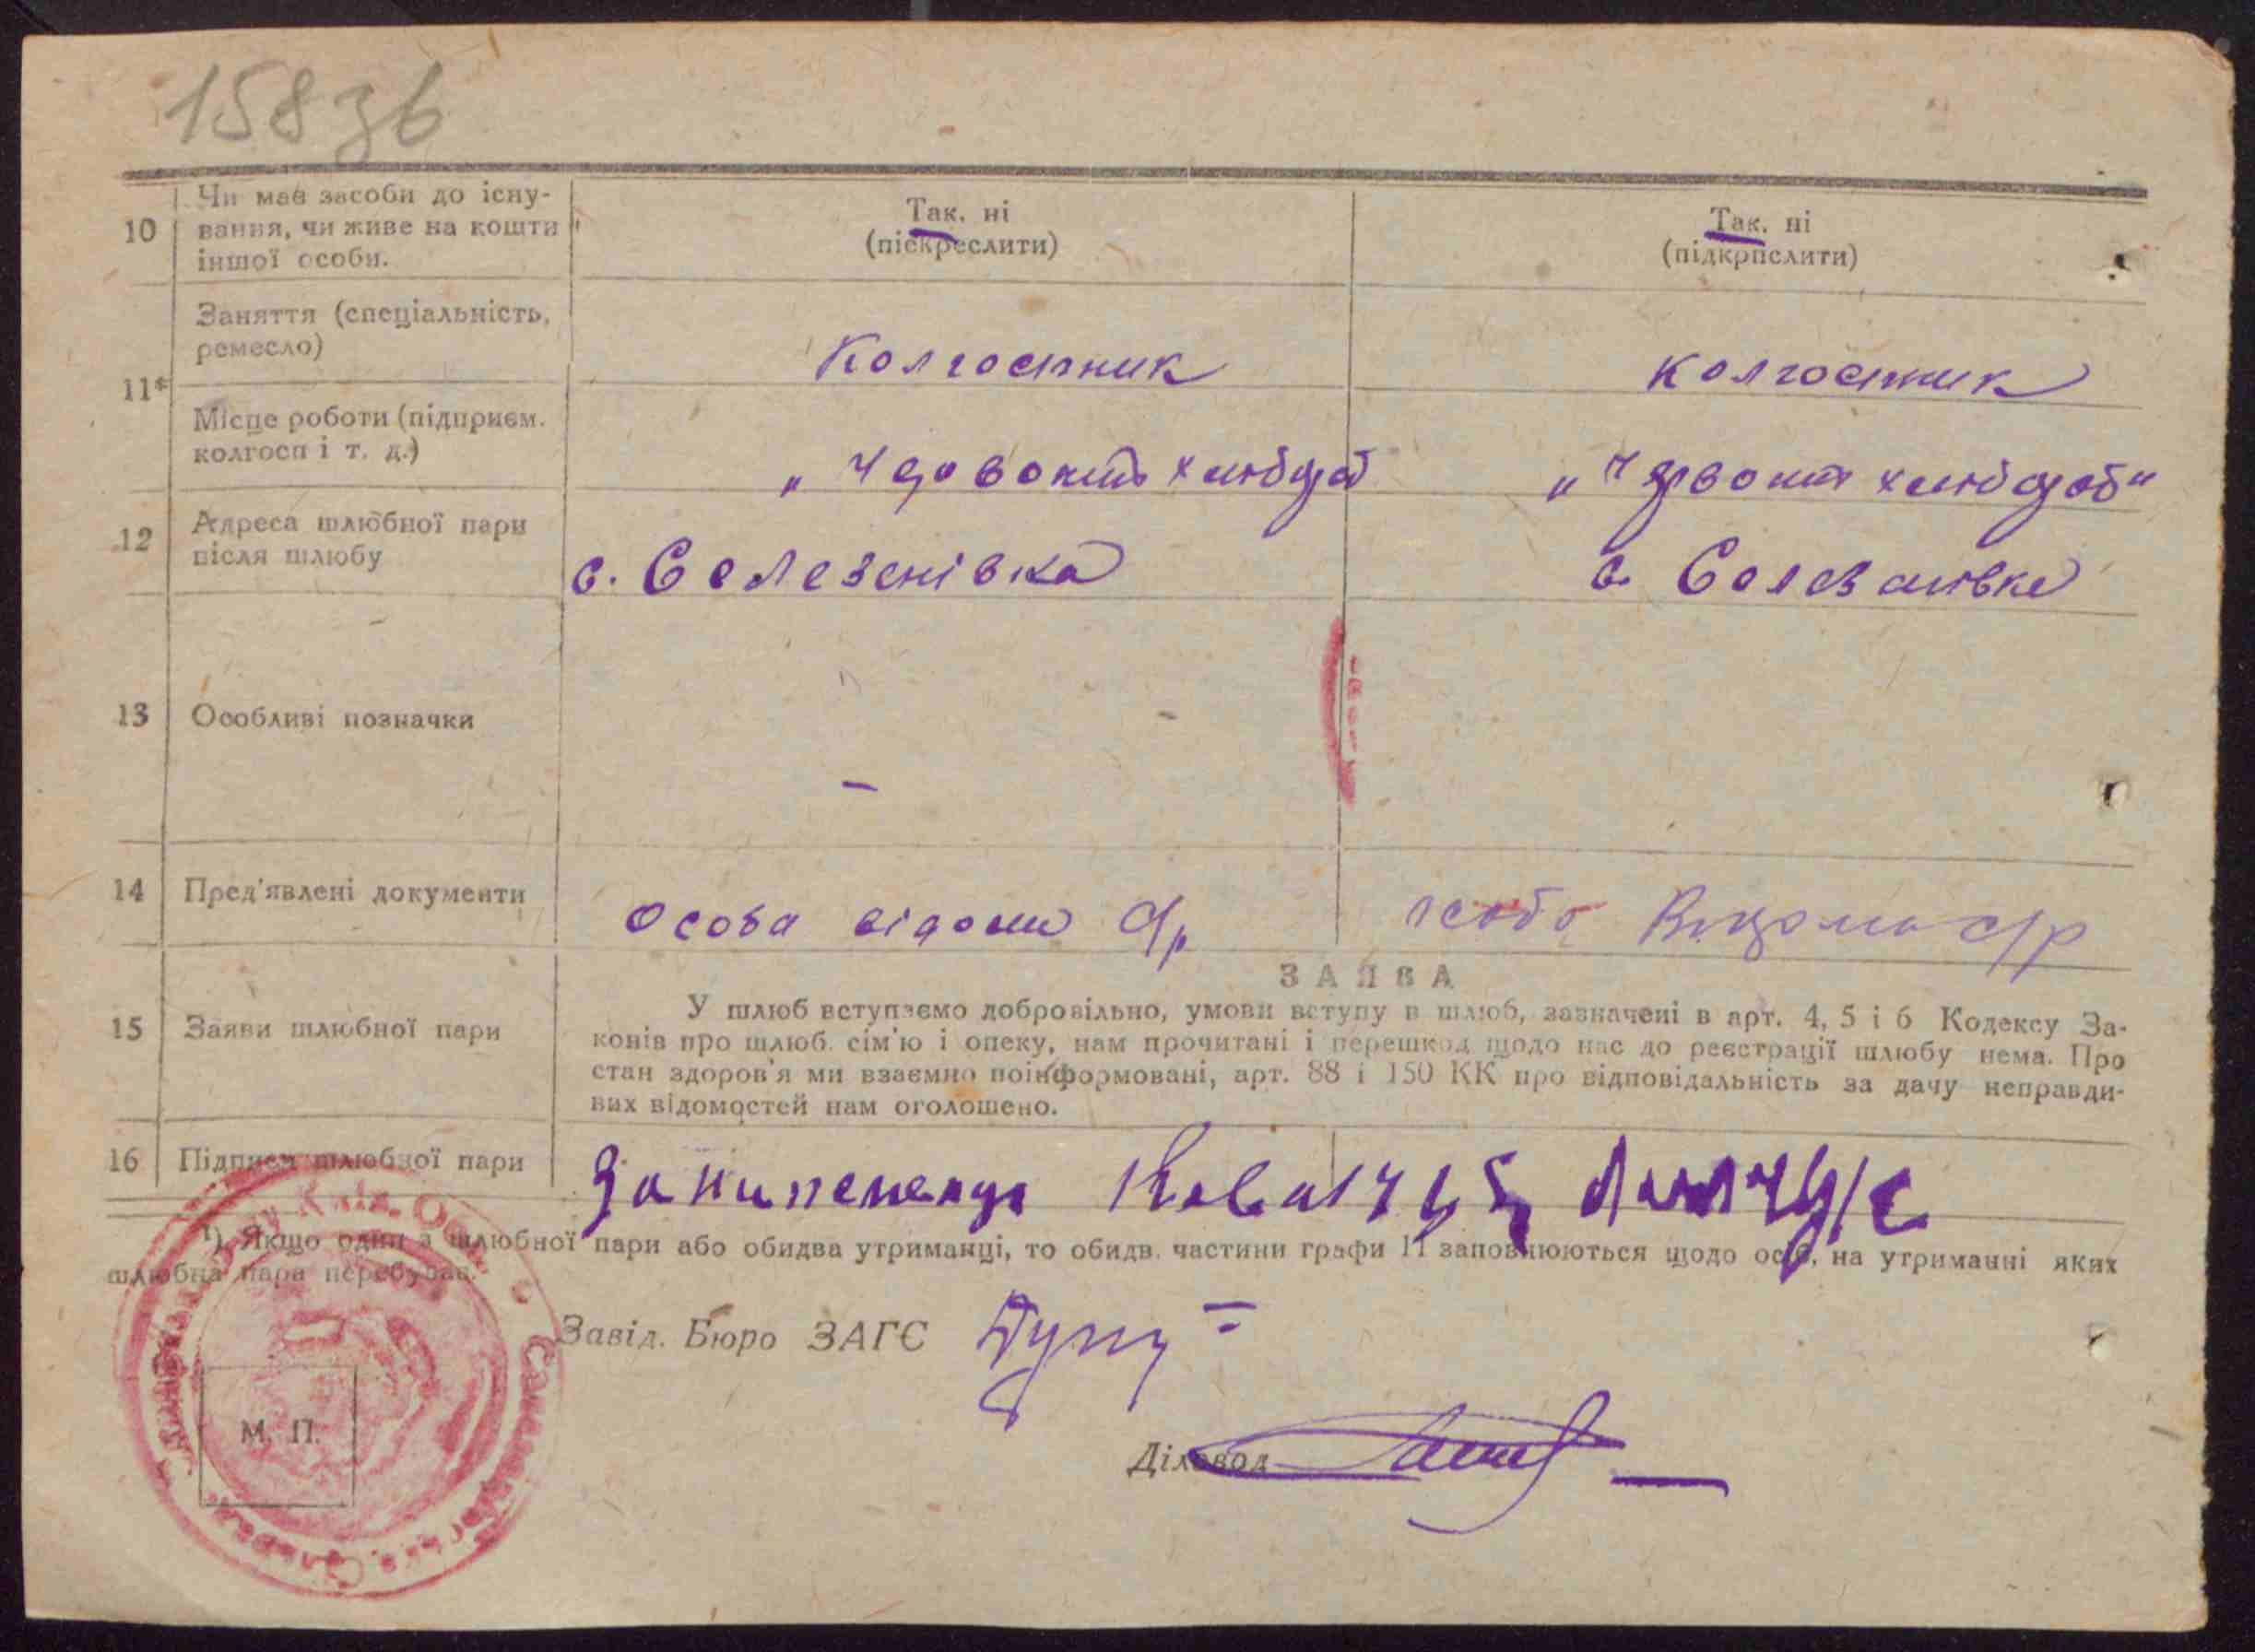 158зв
10 Чи має засоби до існу-
вання, чи живе на кошти
іншої особи.
Так, ні
(піекреслити)
Так, ні
(підкрпслити)
11*
Заняття (спеціальність,
ремесло)
Колгоспник
колгоспник
Місце роботи (підприєм.
колгосп і т. д.)
„Червоний хлібороб
„Червоний хлібороб"
12 Адреса шлюбної пари
після шлюбу
с. Селезенівка
с.
13 Особливі позначки
–
14 Пред'явлені документи
Особа відома с/р
особа Відома с/р
15 Заяви шлюбної пари
ЗАЯВА
У шлюб вступаємо добровільно, умови вступу в шлюб, зазначені в арт. 4, 5 і 6 Кодексу За-
конів про шлюб. сім'ю і опеку, нам прочитані і перешкод щодо нас до реєстрації шлюбу нема. Про
стан здоров'я ми взаємно поінформовані, арт. 88 і 150 КК про відповідальність за дачу неправди-
вих відомостей нам оголошено.
16 Підписи шлюбної пари
¹) Якщо один з шлюбної пари або обидва утриманці, то обидв. частини графи 11 заповнюються щодо осіб, на утриманні яких
шлюбна пара перебуває.
Завід. Бюро ЗАГС
М. П.
Діловод